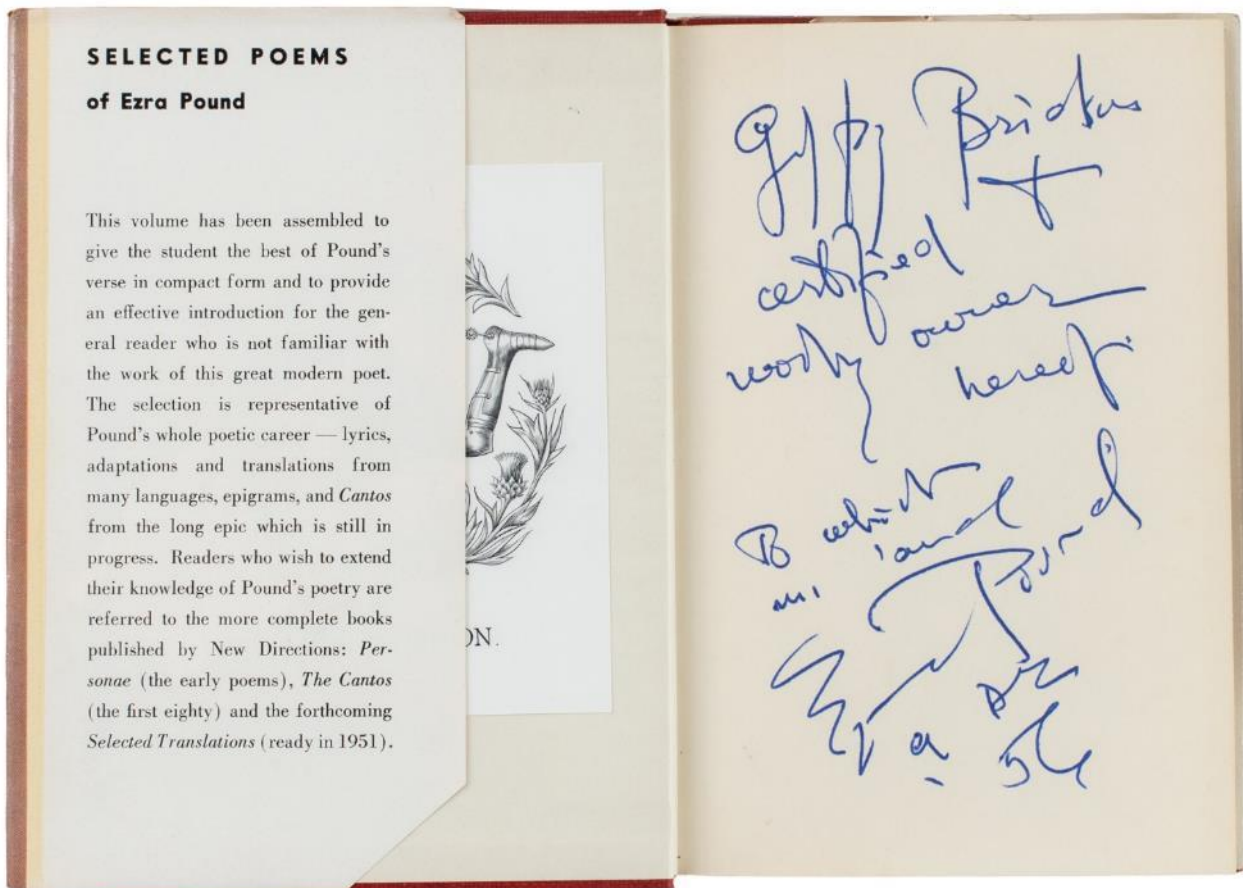 SELECTED POEMS
of Ezra Pound
This volume has been assembled to
give the student the best of Pound's
verse in compact form and to provide
an effective introduction for the gen-
eral reader who is not familiar with
the work of this great modern poet.
The selection is representative of
Pound's whole poetic career — lyrics,
adaptations and translations from
many languages, epigrams, and Cantos
from the long epic which is still in
progress. Readers who wish to extend
their knowledge of Pound's poetry are
referred to the more complete books
published by New Directions: Per-
sonae (the early poems), The Cantos
(the first eighty) and the forthcoming
Selected Translations (ready in 1951).
ON.
certified
worthy owner
hereof.
To which
my hand
Ezra Pound